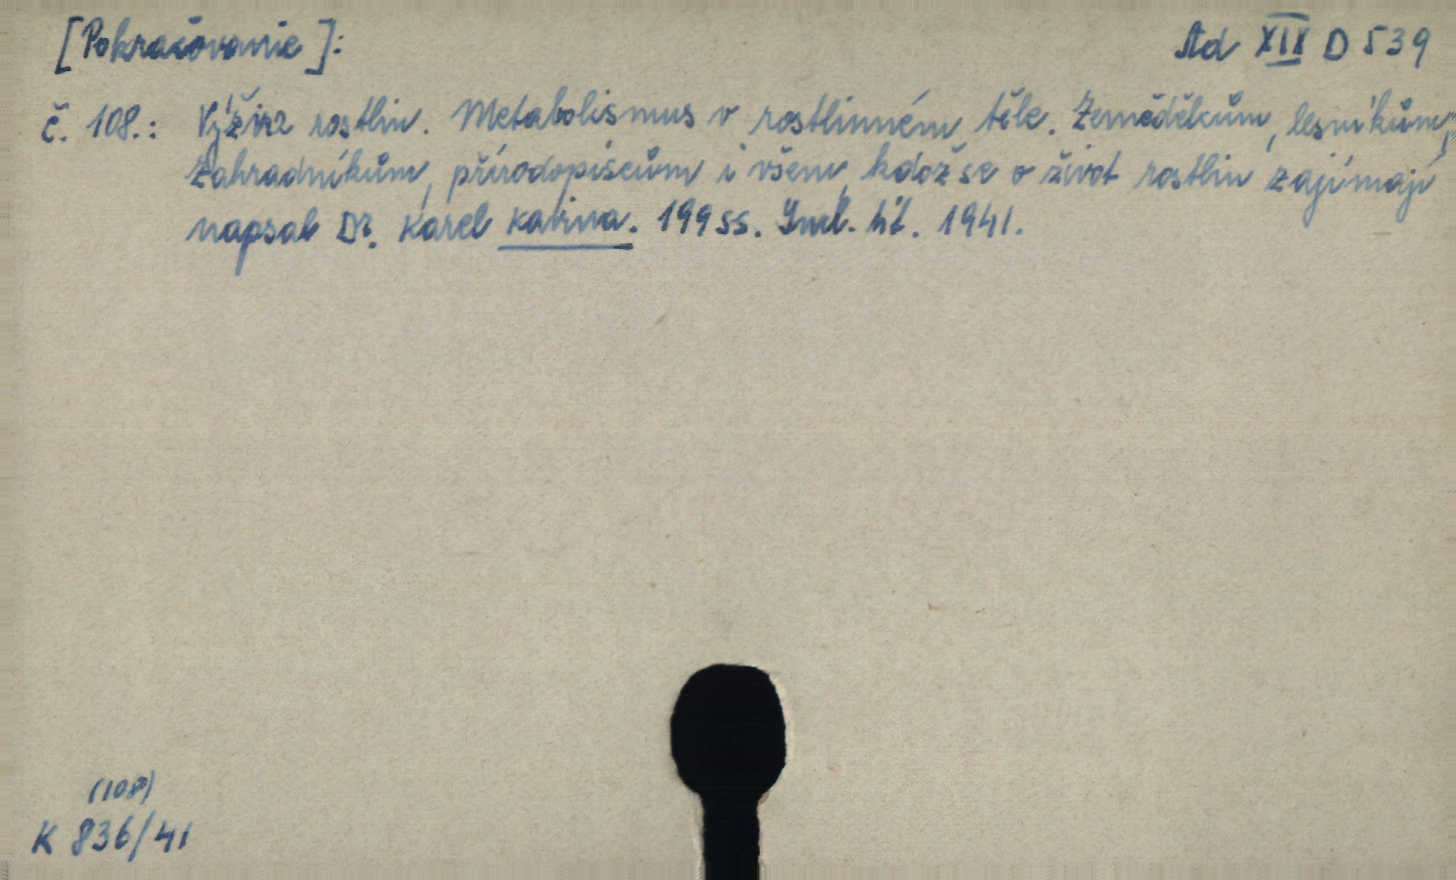 [Pokračovanie]: Ad XIX D 539
č. 108.: Výživa rostlin. Metabolismus v rostlinném těle. Zemědělcům, lesníkům,
zahradníkům, přírodopiscům i všem, kdož se o život rostlin zajímají
napsal Dr. Karel Kavina. 199 ss. lit. 1941.
(108)
K 836/41